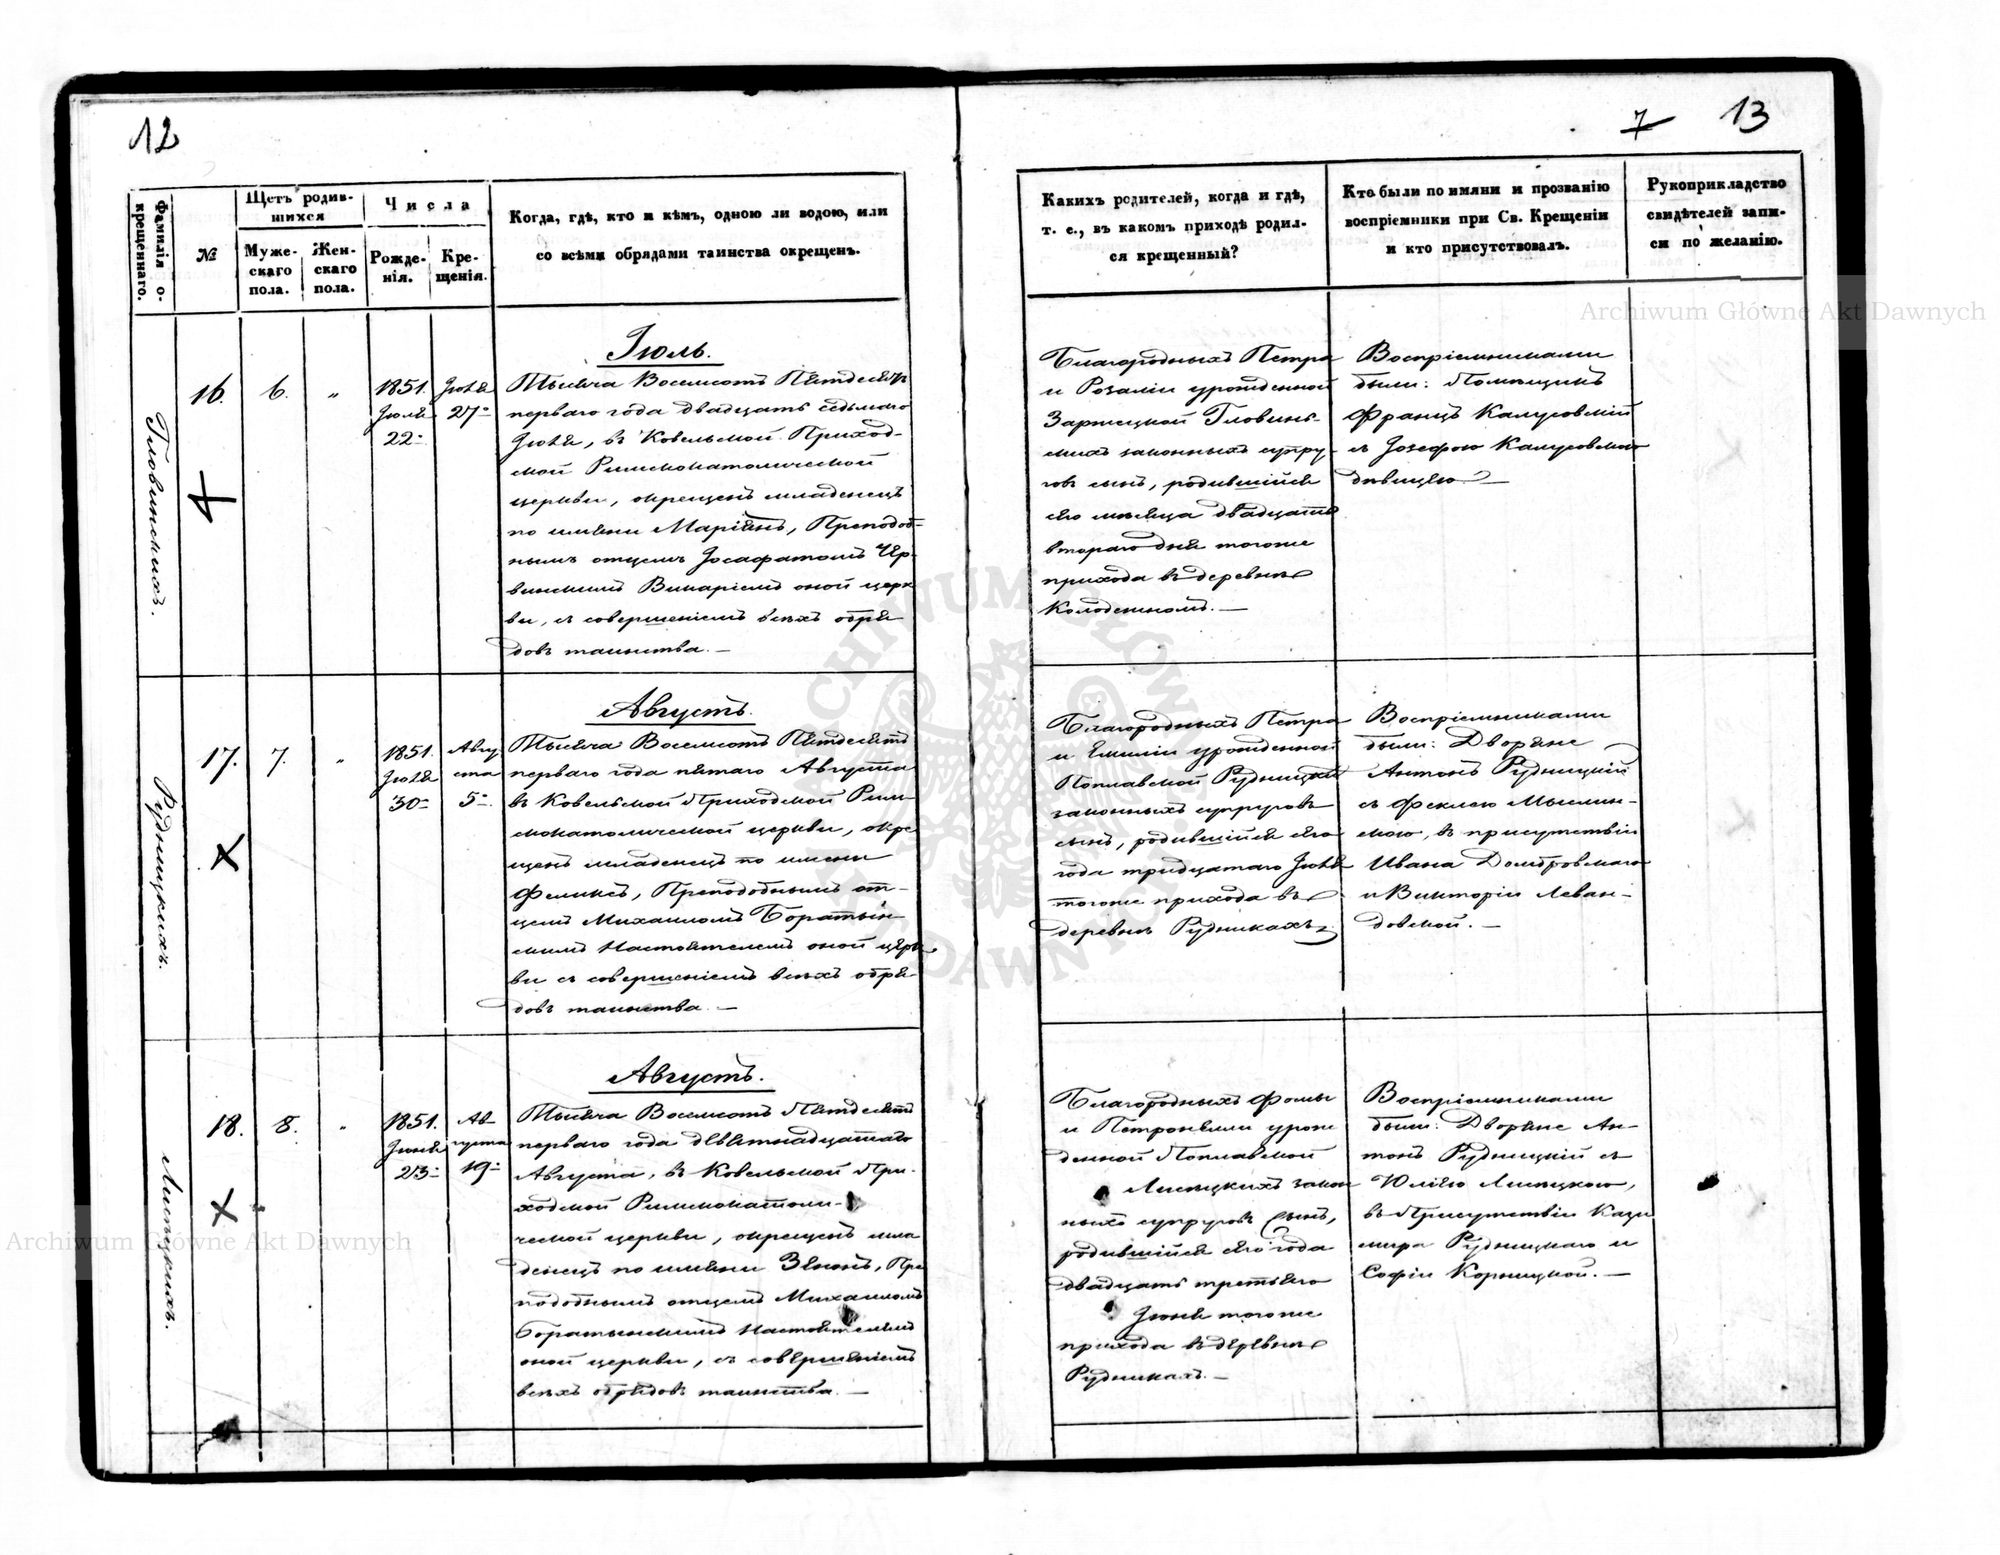 12
Фамилія о-
крещеннаго.
№
Щетъ родив-
шихся
Муже-
скаго
пола.
Жен-
скаго
пола.
Числа
Рожде-
нія.
Кре-
щенія.
Когда, гдѣ, кто и кѣмъ, одною ли водою, или
со всѣми обрядами таинства окрещенъ.
Гловинскихъ.
16.
6.
"
1851.
Іюля
22
Іюля
27
Іюль.
Тысяча Восемсотъ Пятдесятъ
перваго года двадцать седьмаго
Іюля, въ Ковельской Приход-
ской Римскокатолической
церкви, окрещенъ младенецъ
по имени Маріянъ, Преподоб-
нымъ отцемъ Іосафатомъ Чер-
винскимъ Викаріемъ оной церк
ви, съ совершеніемъ всѣхъ обря
довъ таинства. —
Рудницкихъ.
17.
7.
"
1851.
Іюля
30
Авгу
ста
5
Августъ.
Тысяча Восемсотъ Пятдесятъ
перваго года пятаго Августа
въ Ковельской Приходской Рим-
скокатолической церкви, окре
щенъ младенецъ по имени
Феликсъ, Преподобнымъ от-
цемъ Михаиломъ Боратын-
скимъ Настоятелемъ оной церк
ви съ совершеніемъ всѣхъ обря-
довъ таинства. —
Липецкихъ.
18.
8.
"
1851.
Іюня
23
Ав-
густа
19
Августъ.
Тысяча Восемсотъ Пятдесятъ
перваго года девятнадцатаго
Августа, въ Ковельской При-
ходской Римскокатоли-
ческой церкви, окрещенъ мла
денецъ по имени Зенонъ, Пре
подобнымъ отцемъ Михаиломъ
Боратынскимъ Настоятелемъ
оной церкви, съ совершеніемъ
всѣхъ обрядовъ таинства. —
7 13
Какихъ родителей, когда и гдѣ,
т. е., въ какомъ приходѣ родил-
ся крещенный?
Кто были по имяни и прозванію
воспріемники при Св. Крещеніи
и кто присутствовалъ.
Рукоприкладство
свидѣтелей запи-
си по желанію.
Благородныхъ Петра
и Розаліи урожденной
Зарицкой Гловинь-
скихъ законныхъ супру-
говъ сынъ, родившійся
сего мѣсяца двадцать
втораго дня тогоже
прихода въ деревнѣ
Колодежномъ. —
Воспріемниками
были: Помѣщикъ
Францъ Калусовскій
съ Іозефою Калусовскою
дѣвицею. —
Благородныхъ Петра
и Емиліи урожденной
Поплавской Рудницкихъ
законныхъ супруговъ
сынъ, родившійся сего
года тридцатаго Іюля
тогоже прихода въ
деревнѣ Рудникахъ.
Воспріемниками
были: Дворяне
Антонъ Рудницкій
съ Феклею Мыслин-
скою, въ присутствіи
Ивана Домбровскаго
и Викторіи Леван-
довской. —
Благородныхъ Фомы
и Петронели урож
денной Поплавской
Липецкихъ закон
ныхъ супруговъ сынъ,
родившійся сего года
двадцать третьяго
Іюня тогоже
прихода въ деревнѣ
Рудникахъ. —
Воспріемниками
были: Дворяне Ан-
тонъ Рудницкій съ
Юліею Липецкою,
въ Присутствіи Кази
мира Рудницкаго и
Софіи Корницкой. —
Archiwum Główne Akt Dawnych
Archiwum Główne Akt Dawnych
ARCHIWUM GŁÓWNE AKT DAWNYCH